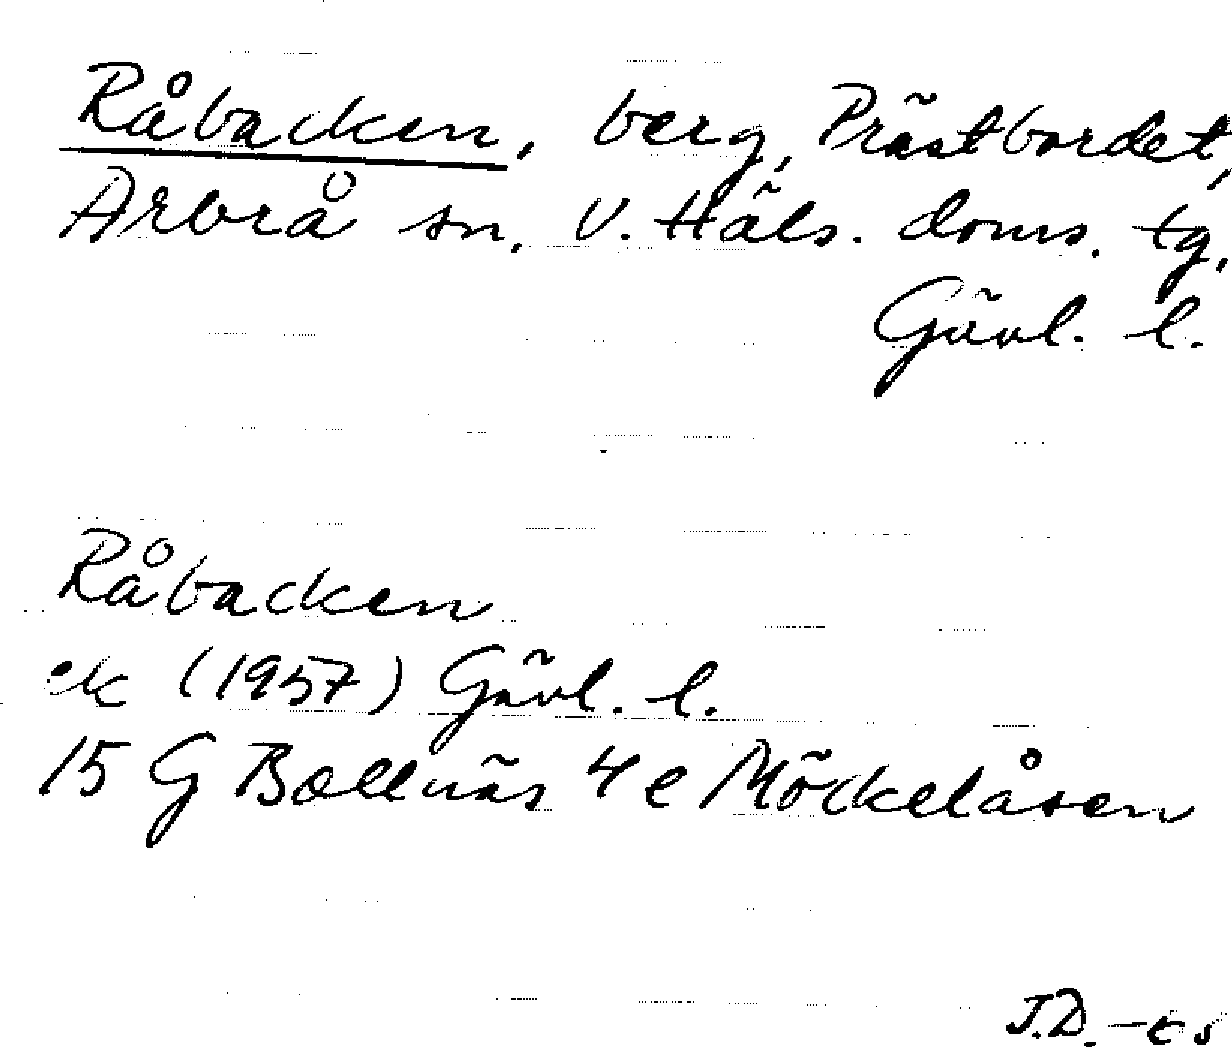 Råbacken, berg, Prästbordet,
Arbrå sn, V. Häls. doms. tg,
Gävl. l.
Råbacken
ek (1957) Gävl. l.
15 G Bollnäs 4 e Möckelåsen
J.D.-es